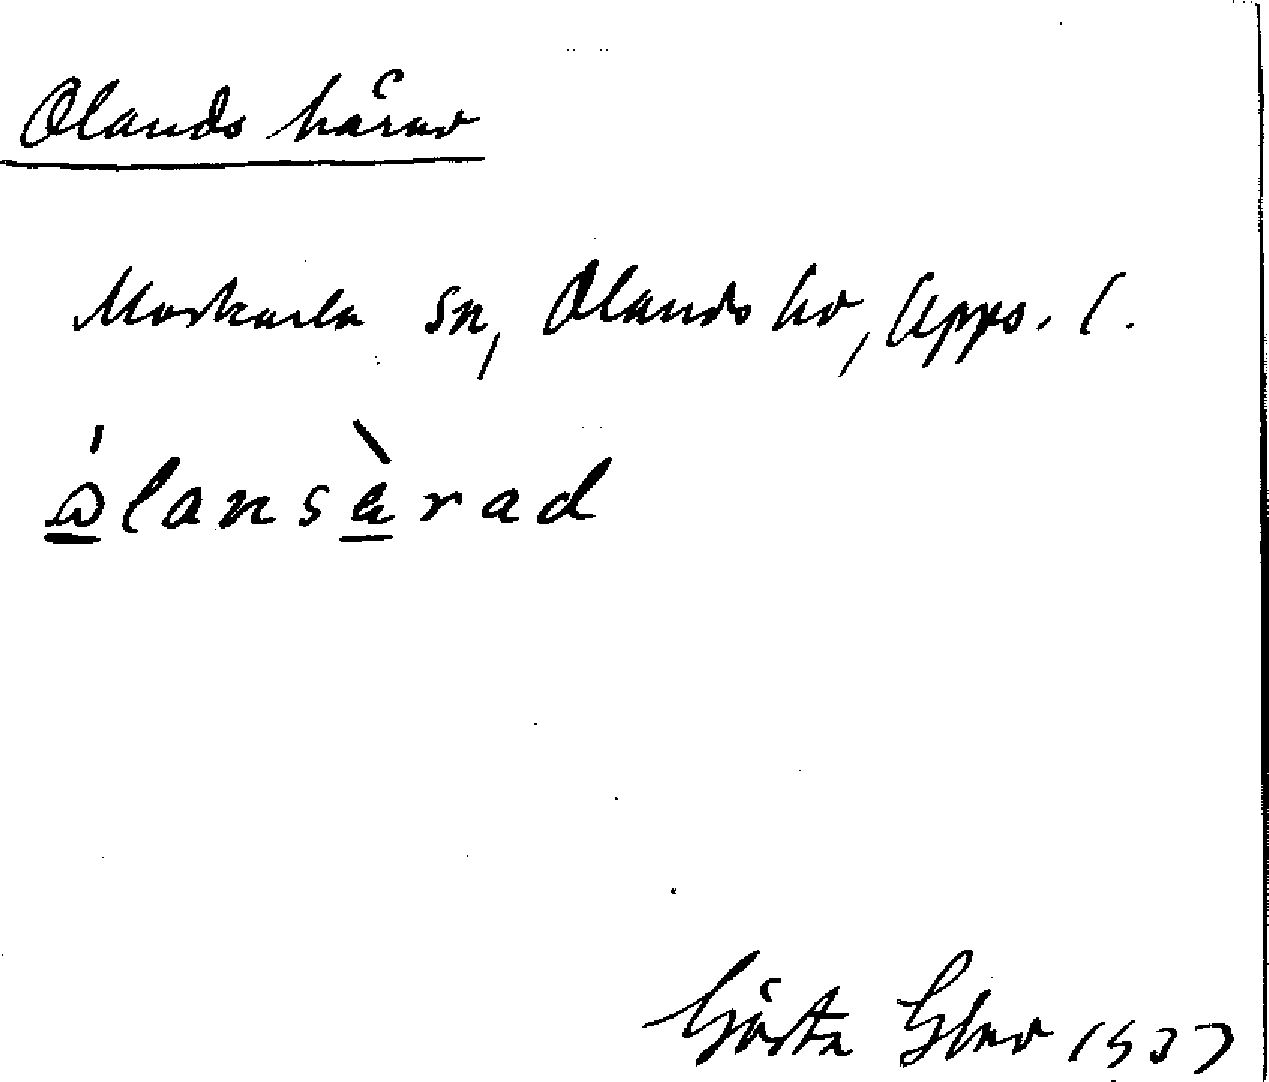 Olands härad
Morkarla sn, Olands hd, Upps. l.
ɷ̀lansàrad
Gösta 1937